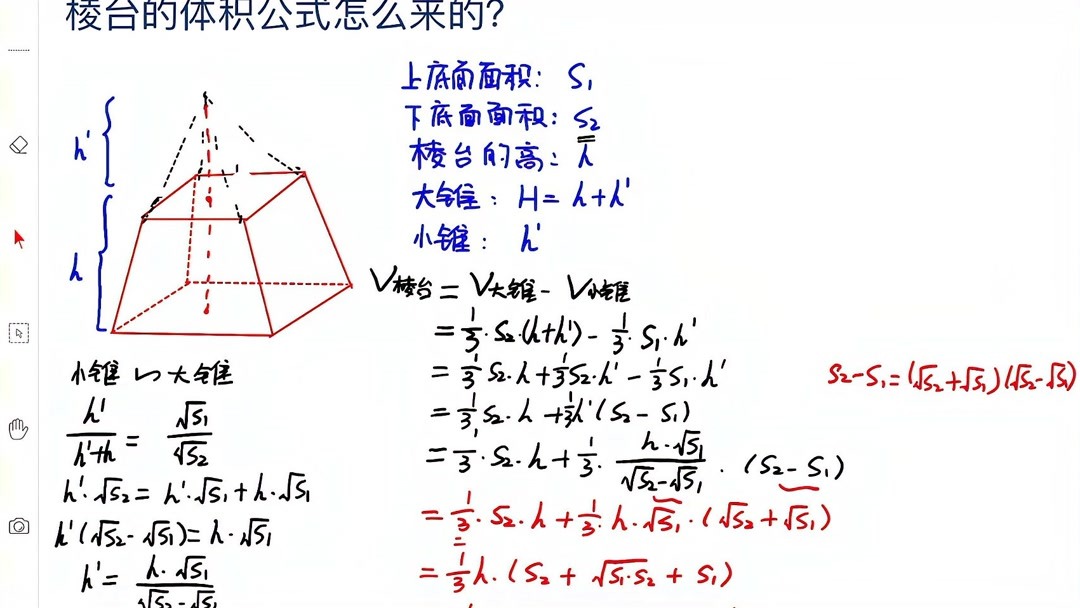 棱台的体积公式怎么来的?
上底面面积: S₁
下底面面积: S₂
棱台的高: h
大锥: H = h + h'
小锥: h'
h'
h
V棱台 = V大锥 - V小锥
= 1/3·S₂·(h+h') - 1/3·S₁·h'
= 1/3 S₂·h + 1/3 S₂·h' - 1/3 S₁·h'
= 1/3 S₂·h + 1/3 h'(S₂ - S₁)
= 1/3·S₂·h + 1/3· h·√S₁/(√S₂-√S₁) ·(S₂ - S₁)
= 1/3·S₂·h + 1/3·h·√S₁·(√S₂+√S₁)
= 1/3 h·(S₂ + √S₁·S₂ + S₁)
S₂-S₁=(√S₂+√S₁)(√S₂-√S₁)
小锥 ∽ 大锥
h'/(h'+h) = √S₁/√S₂
h'·√S₂ = h'·√S₁ + h·√S₁
h'(√S₂-√S₁) = h·√S₁
h' = h·√S₁/(√S₂-√S₁)